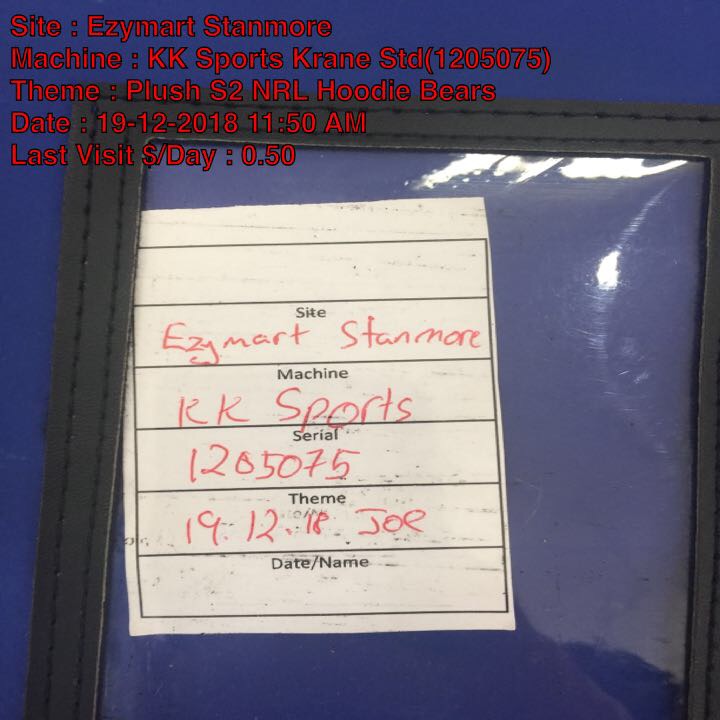 Site : Ezymart Stanmore
Machine : KK Sports Krane Std(1205075)
Theme : Plush S2 NRL Hoodie Bears
Date : 19-12-2018 11:50 AM
Last Visit $/Day : 0.50
Site
Ezymart Stanmore
Machine
KK Sports
Serial
1205075
Theme
19.12.18 Joe
Date/Name